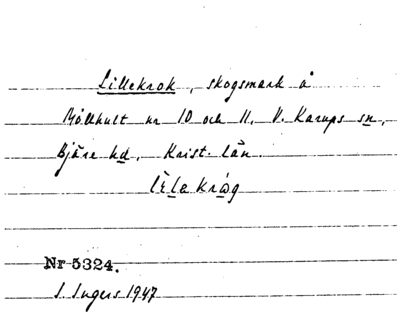 Lillekrok, skogsmark å
Böllhult nr 10 och 11, V. Karups sn,
Bjäre hd, Krist. län.
Nr 5324.
I. Ingers 1947